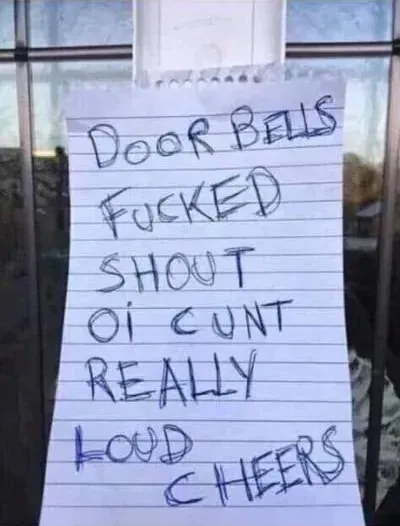 DOOR BELLS
FUCKED
SHOUT
Oi CUNT
REALLY
LOUD
CHEERS